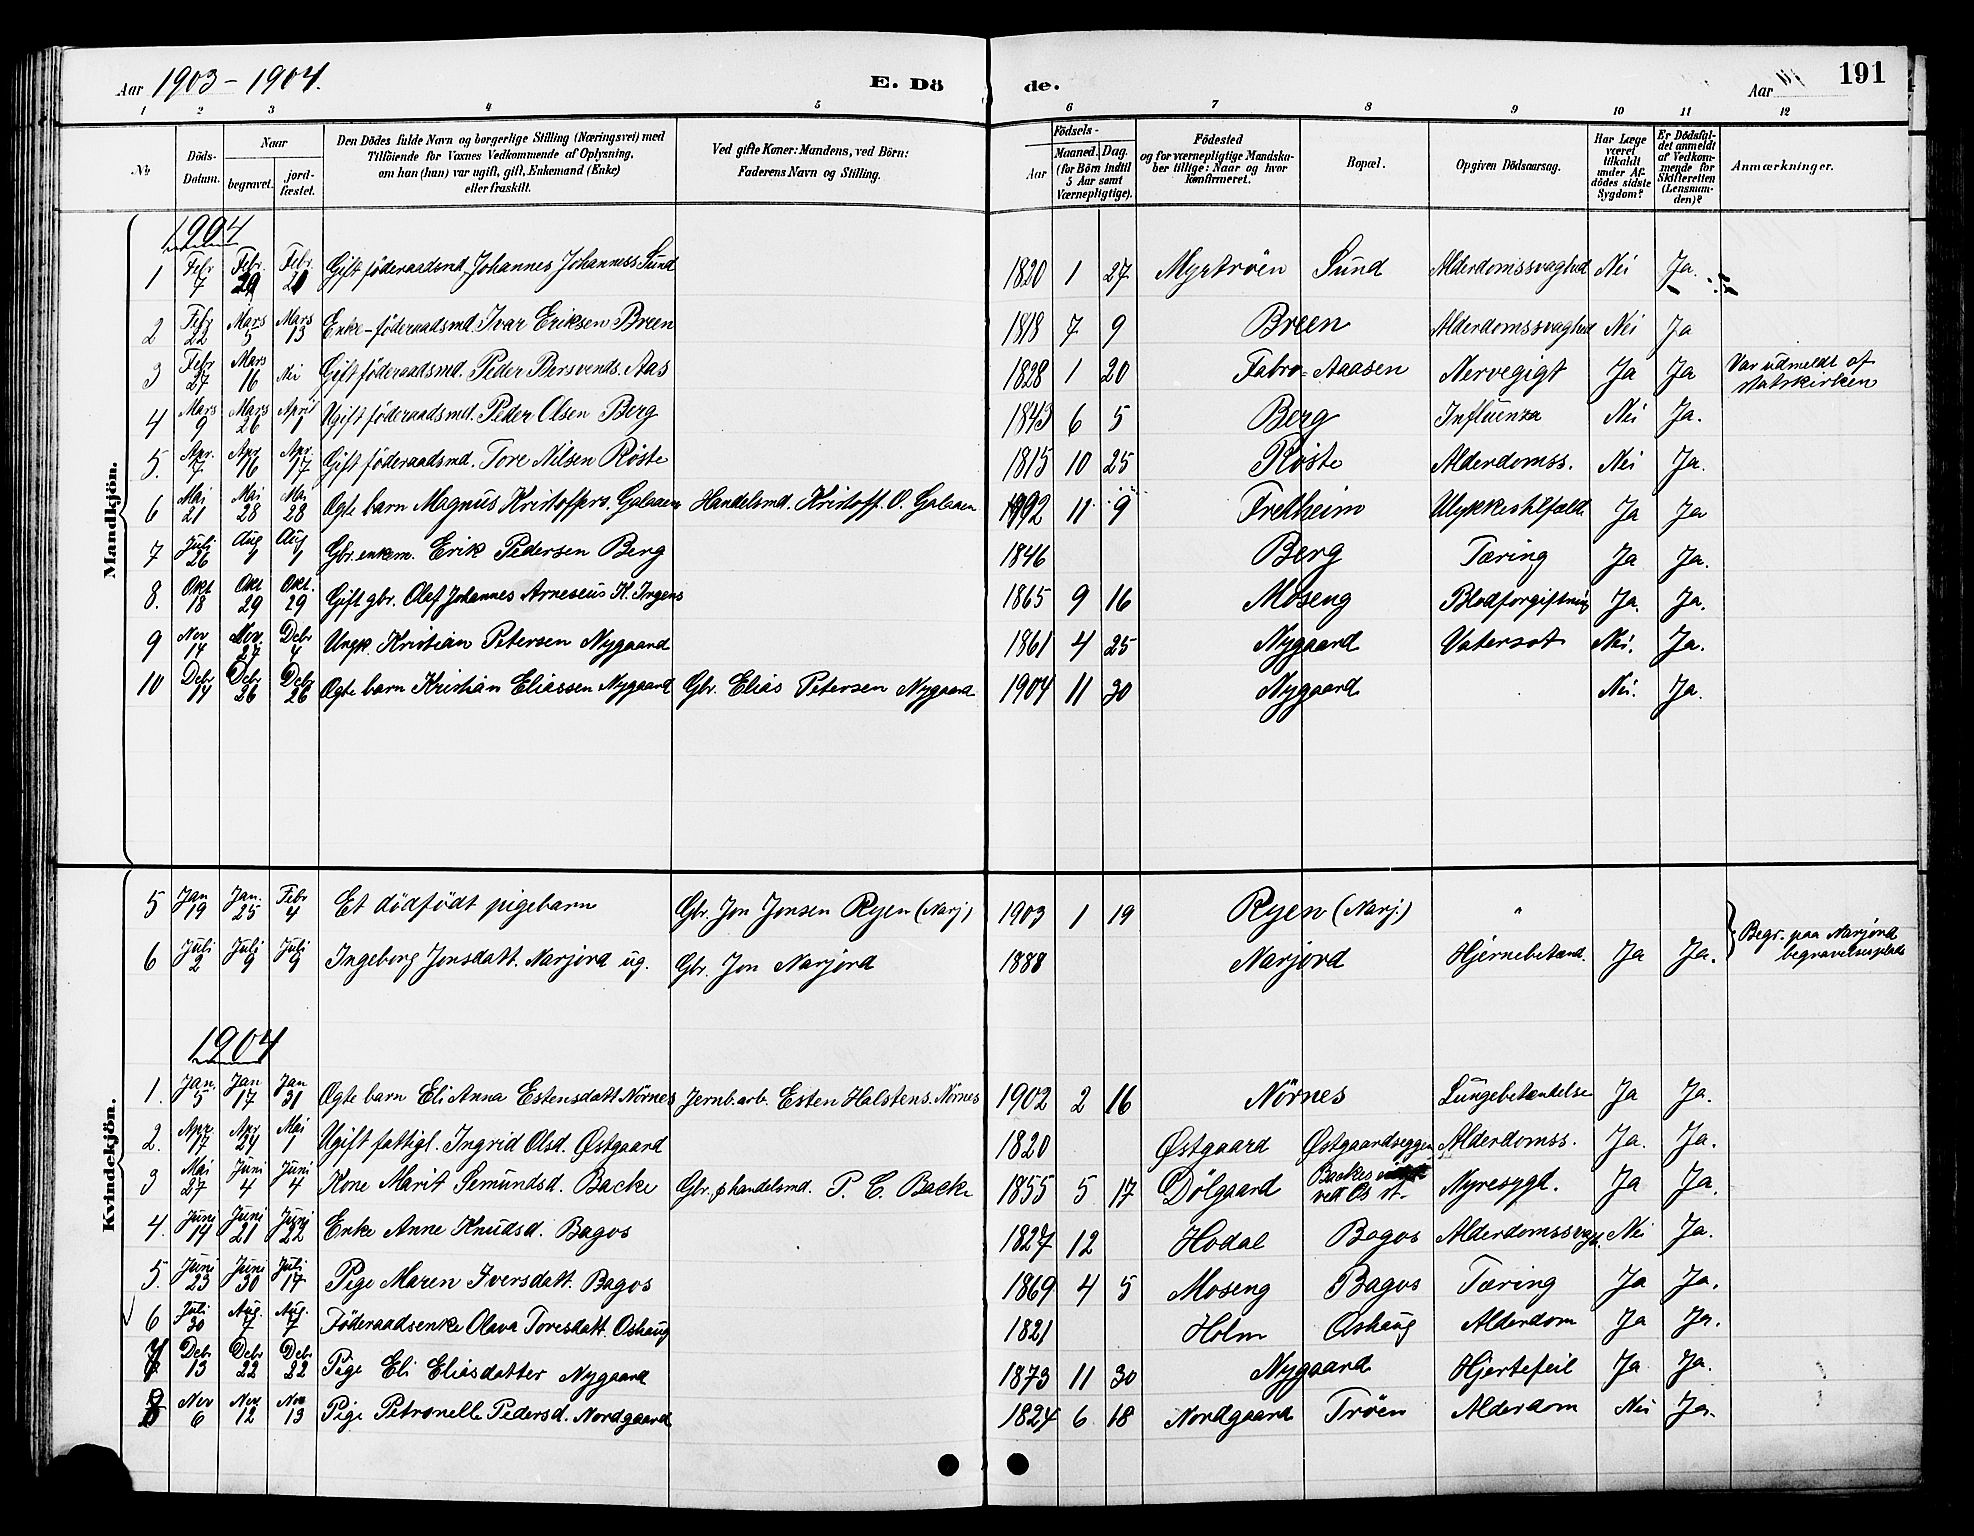 Aar 1903-1904. E. Dö de. Aar 191
1 2 3 4 5 6 7 8 9 10 11 12
No
Döds-Datum.
Naar begravet. jord-fæstet.
Den Dödes fulde Navn og borgerlige Stilling (Næringsvei) med Tilföiende for Voxnes Vedkommende af Oplysning, om han (hun) var ugift, gift, Enkemand (Enke) eller fraskilt.
Ved gifte Koner: Mandens, ved Börn: Faderens Navn og Stilling.
Födsels-
Aar Maaned. Dag. (for Börn indtil 5 Aar samt Værnepligtige).
Födested og for værnepligtige Mandskaber tillige: Naar og hvor Konfirmeret.
Bopæl.
Opgiven Dödsaarsag.
Har Læge været tilkaldt under Afdödes sidste Sygdom?
Er Dödsfaldet anmeldt af Vedkommende for Skifteretten (Lensmanden)?
Anmærkninger.
Mandkjön.
1904
1 Febr 7 Febr. Febr. 21 Gift föderaadsmd. Johannes Johanness. Sund 1820 1 27 Myströen Sund Alderdomssvaghed Nei Ja.
2 Febr 22 Mars 5 Mars 13 Enke-föderaadsmd. Ivar Eriksen Breen 1818 7 9 Breen Alderdomssvaghed Nei Ja
3 Febr 27 Mars 16 Nei Gift föderaadsmd. Peder Bersvends. Aas 1828 1 20 Fabro-Aaasen Nervegigt Ja Ja Var udmeldt af statskirken
4 Mars 9 Mars 26 April 1 Ugift föderaadsmd. Peder Olsen Berg 1843 6 5 Berg Influenza Nei Ja.
5. Apr. 7 Apr 16 Apr. 17 Gift föderaadsmd. Tore Nilsen Röste 1815 10 25 Röste Alderdomss. Nei Ja.
6 Mai 21 Mai 28 Mai 28 Ægte barn Magnus Kristoffers. Galaaen Handelsmd. Kristoff. O. Galaaen 11 9 Fretheim Ulykkestilfælde Ja Ja
7 Juli 26 Aug 1 Aug 1 Gbr. enkem. Erik Pedersen Berg 1846 Berg Tæring Ja Ja.
8. Okt 18 Okt 29 Okt. 29 Gift gbr. Olaf Johannes Arneseus H. Ingens 1865 9 16 Moseng Blodforgiftning Ja. Ja.
9 Nov 14 Nov. 27 Debr 4 Ungk. Kristian Petersen Nygaard 1861 4 25 Nygaard Vatersot Nei. Ja.
10 Debr 14 Debr 26 Debr 26 Ægte barn Kristian Eliassen Nygaard Gbr. Elias Petersen Nygaard 1904 11 30 Nygaard Nei. Ja.
Kvindekjön.
5 Jan 19 Jan. 25 Febr 4 Et dödfödt pigebarn Gbr. Jon Jonsen Ryen (Narj) 1903 1 19 Ryen (Narj.) "
6 Juli 2 Juli 9 Juli 9 Ingeborg Jonsdatt. Narjord ug. Gbr. Jon Narjord 1888 Narjord Hjernebetænd. Ja Ja. Begr. paa Narjord begravelsesplads
1904
1. Jan. 5 Jan 17 Jan 31 Ægte barn Eli Anna Estensdatt Nörnes Jernb. arb. Esten Halstens. Nörnes 1902 2 16 Nörnes Lungebetændelse Ja Ja.
2. Apr. 17 Apr 24 Mai 1 Ugift fattigl. Ingrid Olsd. Østgaard 1820 Østgaard Østgaardseggen Alderdomss. Ja. Ja.
3 Mai 27 Juni 4 Juni 4 Kone Marit Semundsd. Backe Gbr. & handelsmd. P. C. Backe 1855 5 17 Dölgaard Backes ved Os st. Nyresygd. Ja Ja.
4. Juni 14 Juni 21 Juni 22 Enke Anne Knudsd. Bagos 1827 12 Hodal Bagos Alderdomssvagh. Nei Ja.
5. Juni 23 Juni 30 Juli 17 Pige Maren Iversdatt. Bagos 1869 4 5 Moseng Bagos Tæring Ja Ja.
6 Juli 30 Aug. 7 Aug. 7 Föderaadsenke Olava Toresdatt. Oshaug 1821 Holm Oshaug Alderdom Ja Ja.
7 Debr 13 Debr 22 Debr 22 Pige Eli Eliasdatter Nygaard 1873 11 30 Nygaard Hjertefeil Ja Ja.
8 Nov 6 Nov 12 Nov 13 Pige Petronelle Pedersd. Nordgaard 1824 6 18 Nordgaard Tröen Alderdom Nei Ja.